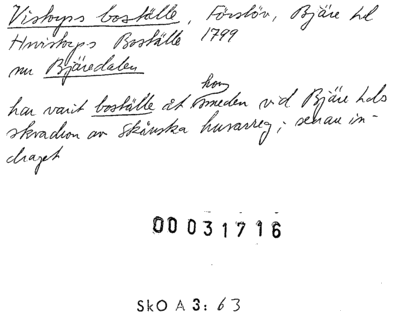 Vistorps boställe, Förslöv, Bjäre hd
Hvistorps Boställe 1799
nu Bjäredalen
hov
har varit boställe åt smeden vid Bjäre hds
skvadron av Skånska husarreg; senare in-
draget
00031716
SkO A 3: 63